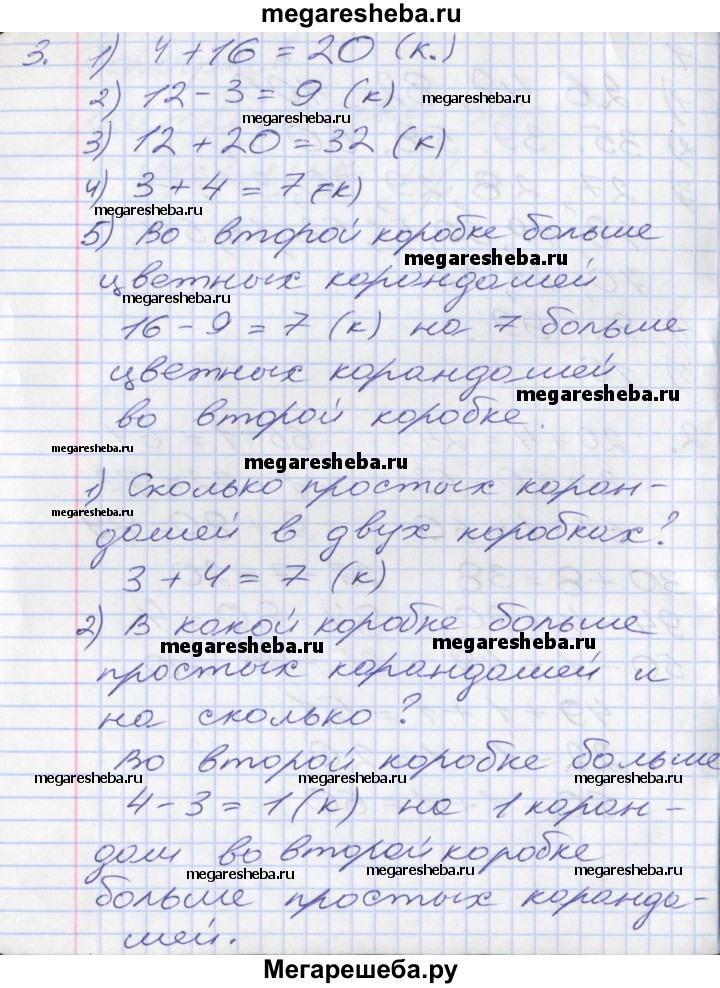 megaresheba.ru
3. 1) 4 + 16 = 20 (к.)
2) 12 - 3 = 9 (к)
megaresheba.ru
megaresheba.ru
3) 12 + 20 = 32 (к)
4) 3 + 4 = 7 (к)
megaresheba.ru
5) Во второй коробке больше
megaresheba.ru
цветных карандашей
megaresheba.ru
16 - 9 = 7 (к) на 7 больше
цветных карандашей
megaresheba.ru
во второй коробке.
megaresheba.ru
megaresheba.ru
1) Сколько простых каран-
megaresheba.ru
дашей в двух коробках?
3 + 4 = 7 (к)
2) В какой коробке больше
megaresheba.ru
megaresheba.ru
простых карандашей и
на сколько?
Во второй коробке больше
megaresheba.ru
megaresheba.ru
megaresheba.ru
4 - 3 = 1 (к) на 1 каран-
даш во второй коробке
megaresheba.ru
megaresheba.ru
megaresheba.ru
больше простых каранда-
шей.
Мегарешеба.ру